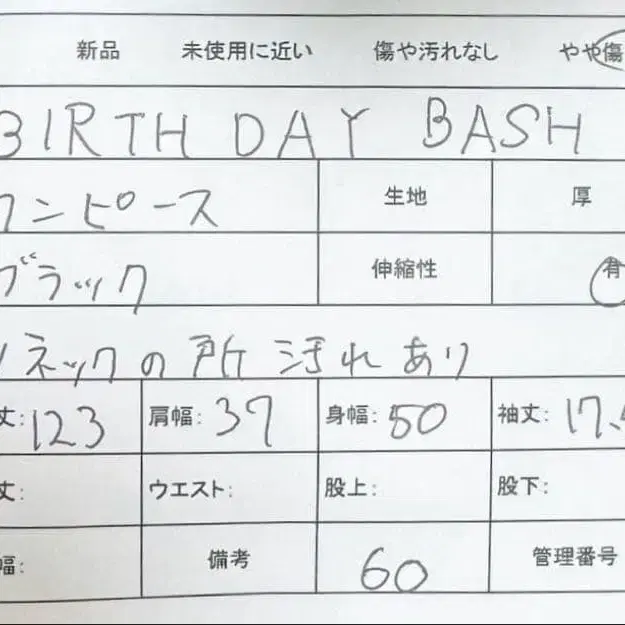 新品 未使用に近い 傷や汚れなし やや傷
BIRTH DAY BASH
ワンピース 生地 厚
ブラック 伸縮性 有
ネックの所 汚れあり
丈: 123 肩幅: 37 身幅: 50 袖丈: 17.
丈: ウエスト: 股上: 股下:
幅: 備考 60 管理番号